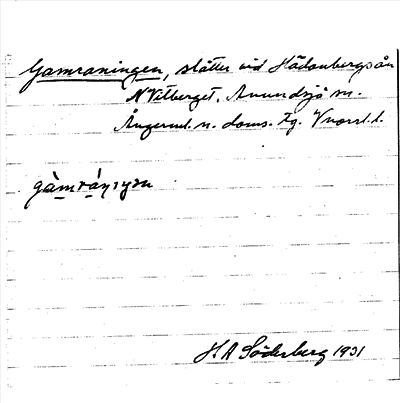 Gamraningen, slåtter vid Hädanbergsån
N Vitberget. Anundsjö sn.
Ångerml. n. doms. Fg. Vnorrl. l.
H A Söderberg 1931